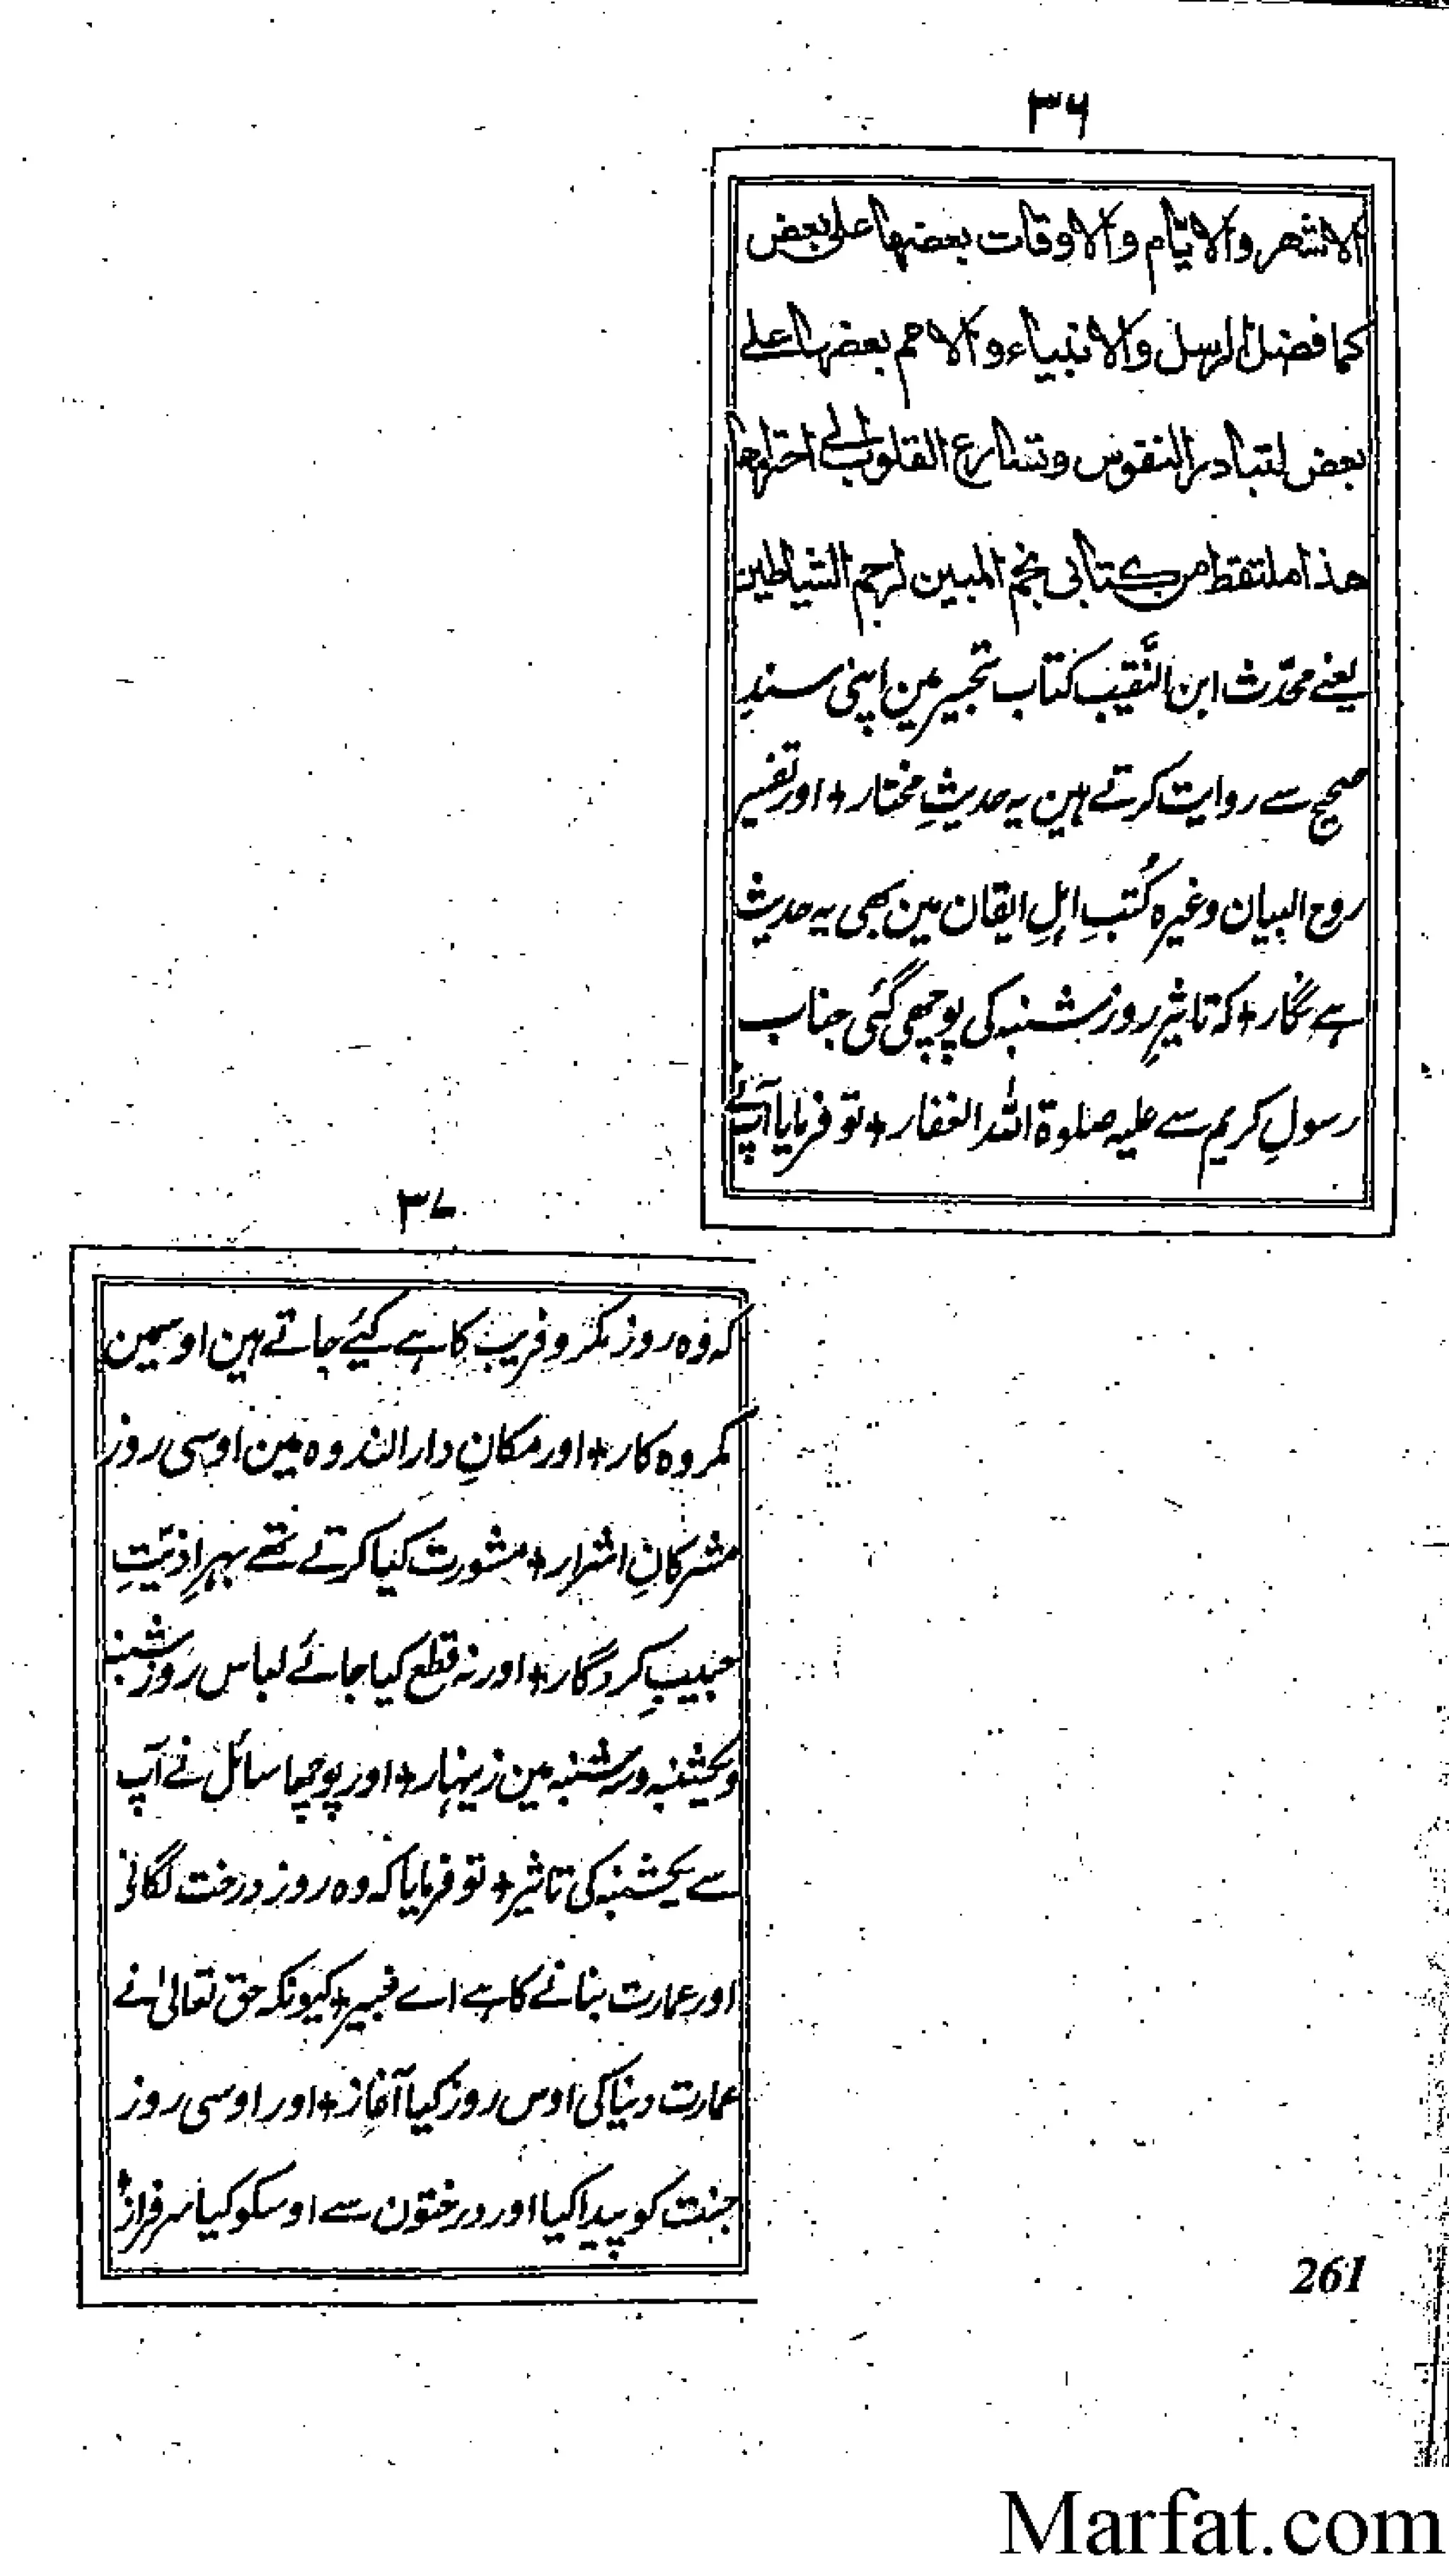 ۳۶
الاشهر والایّام والاوقات بعضها علی بعض
کما فضل الرسل والانبیاء والامم بعضها علے
بعض لتبادر النفوس وتسارع القلوب الے احترامها
هذا ملتقط من کتابی نجم المبین لرجم الشیاطین
یعنے محدّث ابن النَّقیب کتاب تحبیر مین اپنی سندِ
صحیح سے روایت کرتے ہین یہ حدیثِ مختار + اور تفسیر
روح البیان وغیرہ کُتبِ اہلِ ایقان مین بھی یہ حدیث
ہے نگار + کہ تاثیرِ روز شنبہ کی پوچھی گئی جناب
رسولِ کریم سے علیہ صلوۃ اللہ الغفار + تو فرمایا آپنے
۳۷
کہ وہ روز مکر و فریب کا ہے کیے جاتے ہین اوسمین
مکروہ کار + اور مکانِ دار الندوہ مین اوسی روز
مشرکانِ اشرار + مشورت کیا کرتے تھے بہرِ اذیّتِ
حبیبِ کردگار + اور نہ قطع کیا جائے لباس روز شنبہ
و یکشنبہ و سہ شنبہ مین زینہار + اور پوچھا سائل نے آپ
سے یکشنبہ کی تاثیر + تو فرمایا کہ وہ روز درخت لگانی
اور عمارت بنانے کا ہے اے خبیر + کیونکہ حق تعالیٰ نے
عمارت دنیا کی اوس روز کیا آغاز + اور اوسی روز
جنت کو پیدا کیا اور درختون سے اوسکو کیا سرفراز +
261
Marfat.com